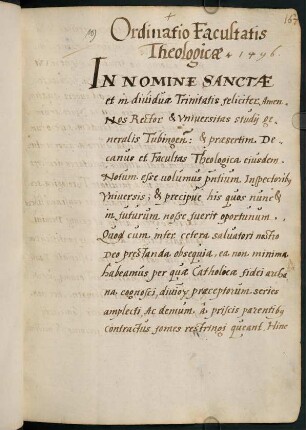 167
19) Ordinatio Facultatis
Theologicæ 1496.
IN NOMINE SANCTÆ
et in diuiduæ Trinitatis feliciter, Amen.
Nos Rector & Vniuersitas studij ge,
neralis Tubingen: & præsertim De,
canus et Facultas Theologica eiusdem.
Notum esse volumus pntium Inspectorib9
Vniuersis, & precipue his quos nunc &
in futurum nosse fuerit oportunum.
Quod cum inter cetera saluatori nostro
Deo præstanda obsequia, ea non minima
habeamus per quæ Catholicæ fidei archa
na cognosci, diuioꝝ præceptorum series
amplecti, Ac demum à priscis parentib9
contractus fomes restringi queant. Hinc